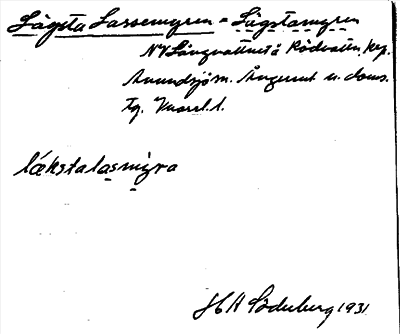 Lägsta Lassemyren = Lägstamyren
NV Långvattnet å Rödvattn.
Anundsjö sn. Ångerml. n. doms.
låkstalasmyra
H H Söderberg 1931